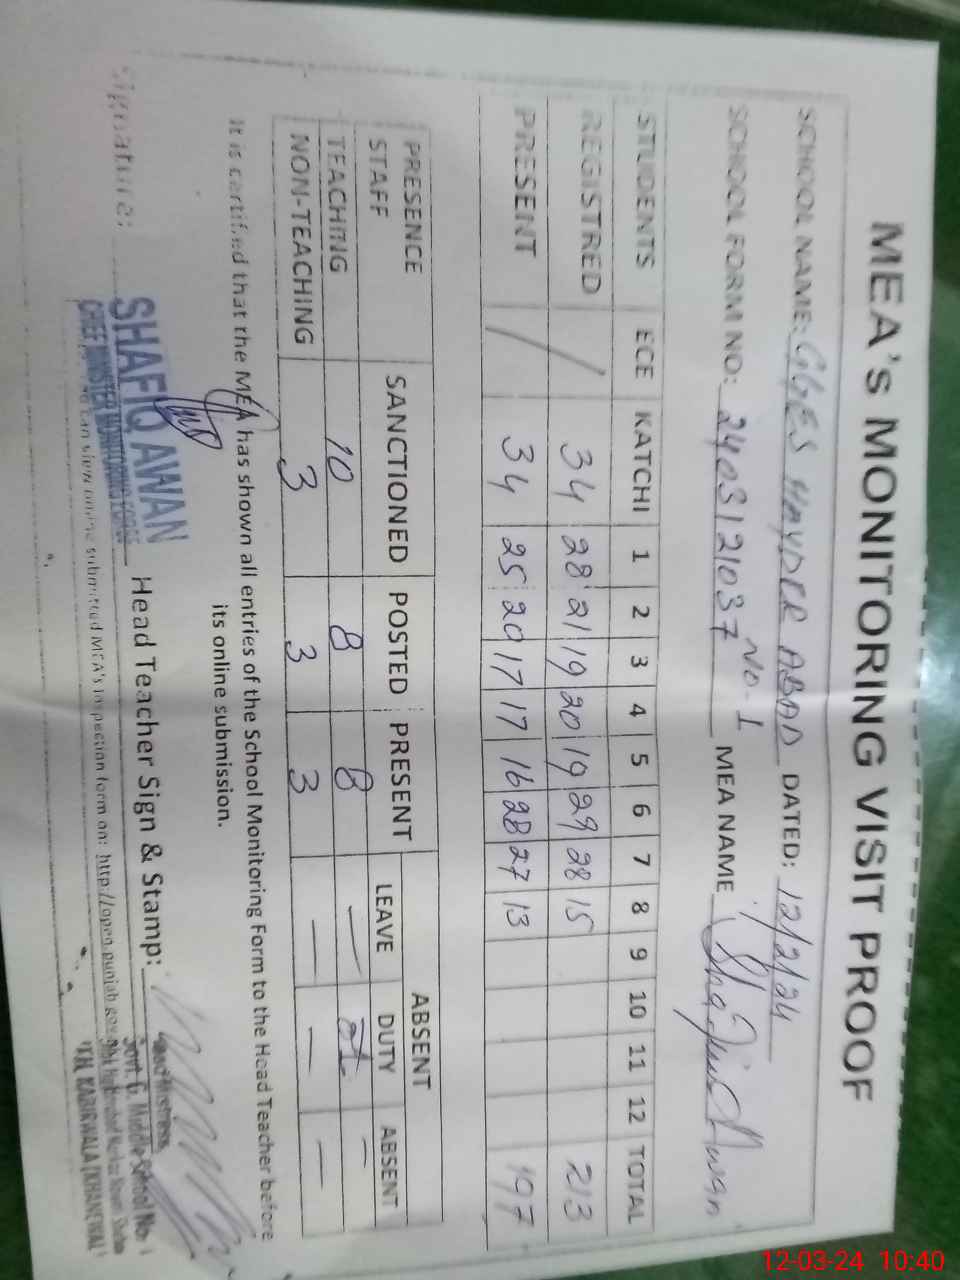 MEA's MONITORING VISIT PROOF
SCHOOL NAME: GGES HAYDER ABAD DATED: 12/2/24
No-1
SCHOOL FORM NO: 2403121037 MEA NAME Shafiq Awan
STUDENTS ECE KATCHI 1 2 3 4 5 6 7 8 9 10 11 12 TOTAL
REGISTRED / 34 28 21 19 20 19 29 28 15 213
PRESENT / 34 25 20 17 17 16 28 27 13 197
PRESENCE STAFF SANCTIONED POSTED PRESENT ABSENT
LEAVE DUTY ABSENT
TEACHING 10 8 8 — — —
NON-TEACHING 3 3 3 — — —
It is certified that the MEA has shown all entries of the School Monitoring Form to the Head Teacher before
its online submission.
Signature: SHAFIQ AWAN Head Teacher Sign & Stamp:
CHIEF MINISTER MONITORING FORCE
Headmistress
Govt. G. Middle School No. 1
can view online submitted MEA's inspection form on: http://open.punjab.gov.pk
KABIRWALA (KHANEWAL)
12-03-24 10:40